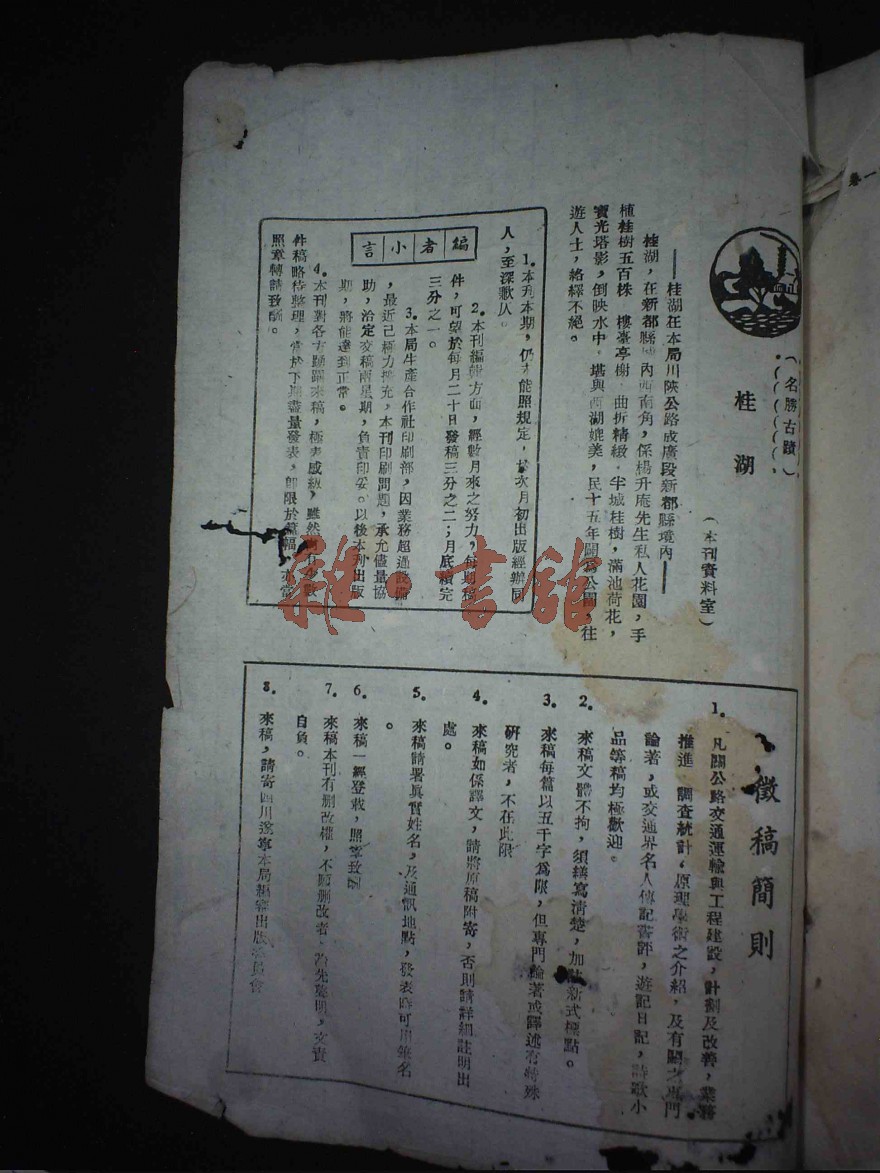 卷一
（名勝古蹟）
桂湖
（本刊資料室）
——桂湖在本局川陝公路成廣段新都縣境內——
桂湖，在新都縣城內西南角，係楊升庵先生私人花園，手
植桂樹五百株 樓臺亭榭，曲折精緻，半城桂樹，滿池荷花，
寶光塔影，倒映水中。堪與西湖媲美，民十五年闢為公園，往
遊人士，絡繹不絕。
編者小言
1.本刊本期，仍未能照規定，於次月初出版經辦同
人，至深歉仄。
2.本刊編輯方面，經數月來之努力，每期稿
件，可望於每月二十日發稿三分之二；月底續完
三分之一。
3.本局生產合作社印刷部，因業務超過設備
，最近已極力擴充，本刊印刷問題，承允儘量協
助，洽定交稿兩星期，負責印妥。以後本刊出版
期，將能達到正常。
4.本刊對各方踴躍來稿，極表感級，雖然尚有少數
件稿略待整理，當於下期盡量發表，即限於篇幅，亦當
照章轉請致酬。
徵稿簡則
1. 凡關公路交通運輸與工程建設，計劃及改善，業務
推進 調查統計，原理學術之介紹，及有關之專門
論著，或交通界名人傳記書評，遊記日記，詩歌小
品等稿均極歡迎。
2. 來稿文體不拘，須繕寫清楚，加新式標點。
3. 來稿每篇以五千字為限，但專門論著或譯述有特殊
研究者，不在此限
4. 來稿如係譯文，請將原稿附寄，否則請詳細註明出
處。
5. 來稿請署真實姓名，及通訊地點，發表時可用筆名
。
6. 來稿一經登載，照章致酬
7. 來稿本刊有刪改權，不願刪改者，希先聲明，文責
自負。
8. 來稿，請寄四川遂寧本局編審出版委員會
雜·書館